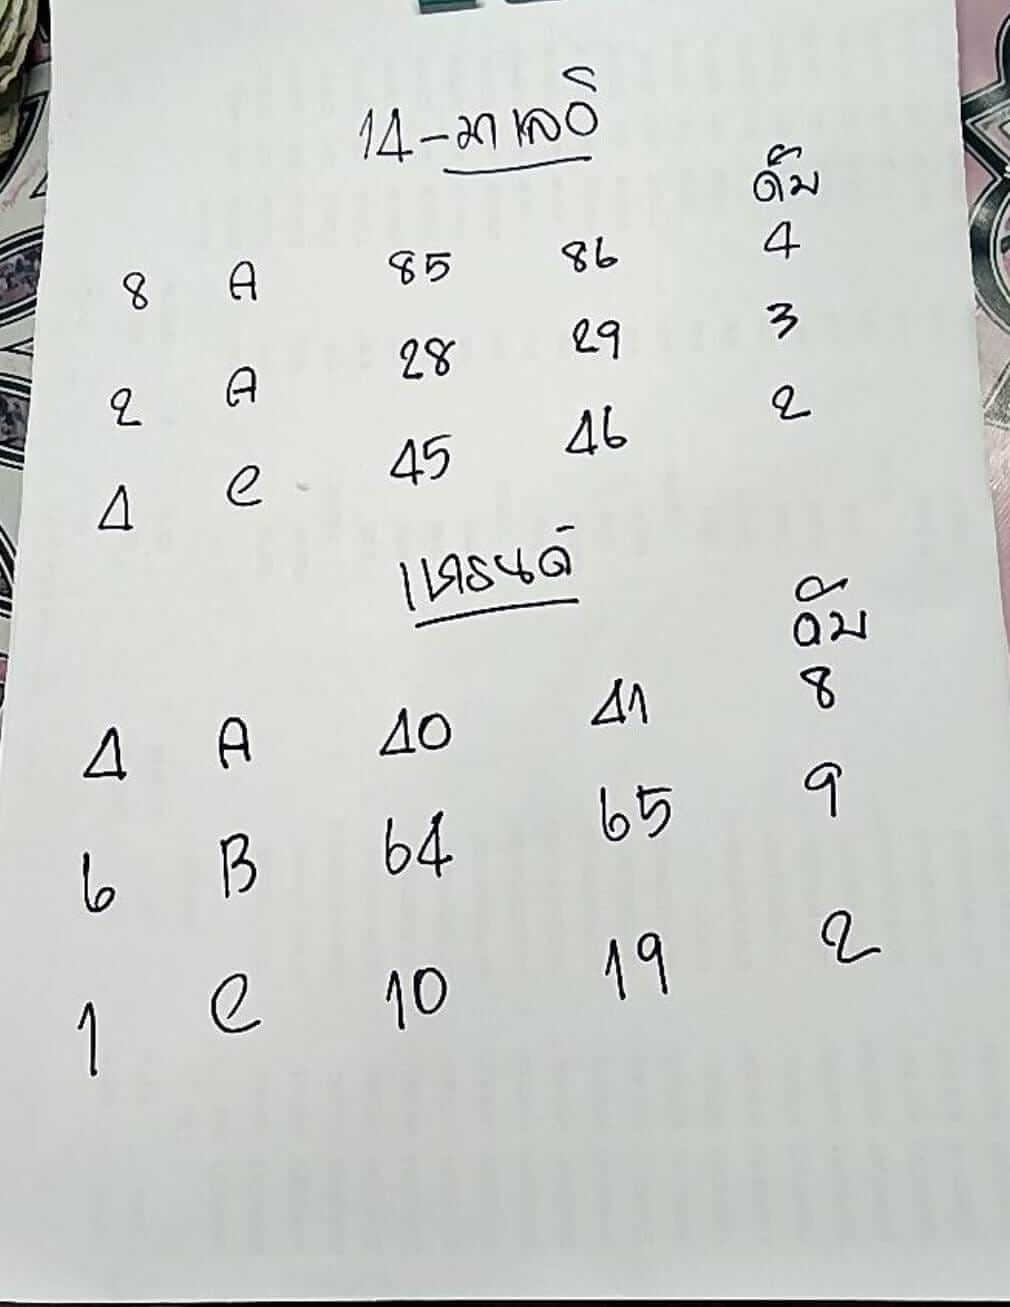 14-มาเลย์
ดับ
8 A 85 86 4
2 A 28 29 3
4 C 45 46 2
แกรนด์
ดับ
4 A 40 41 8
6 B 64 65 9
1 C 10 19 2